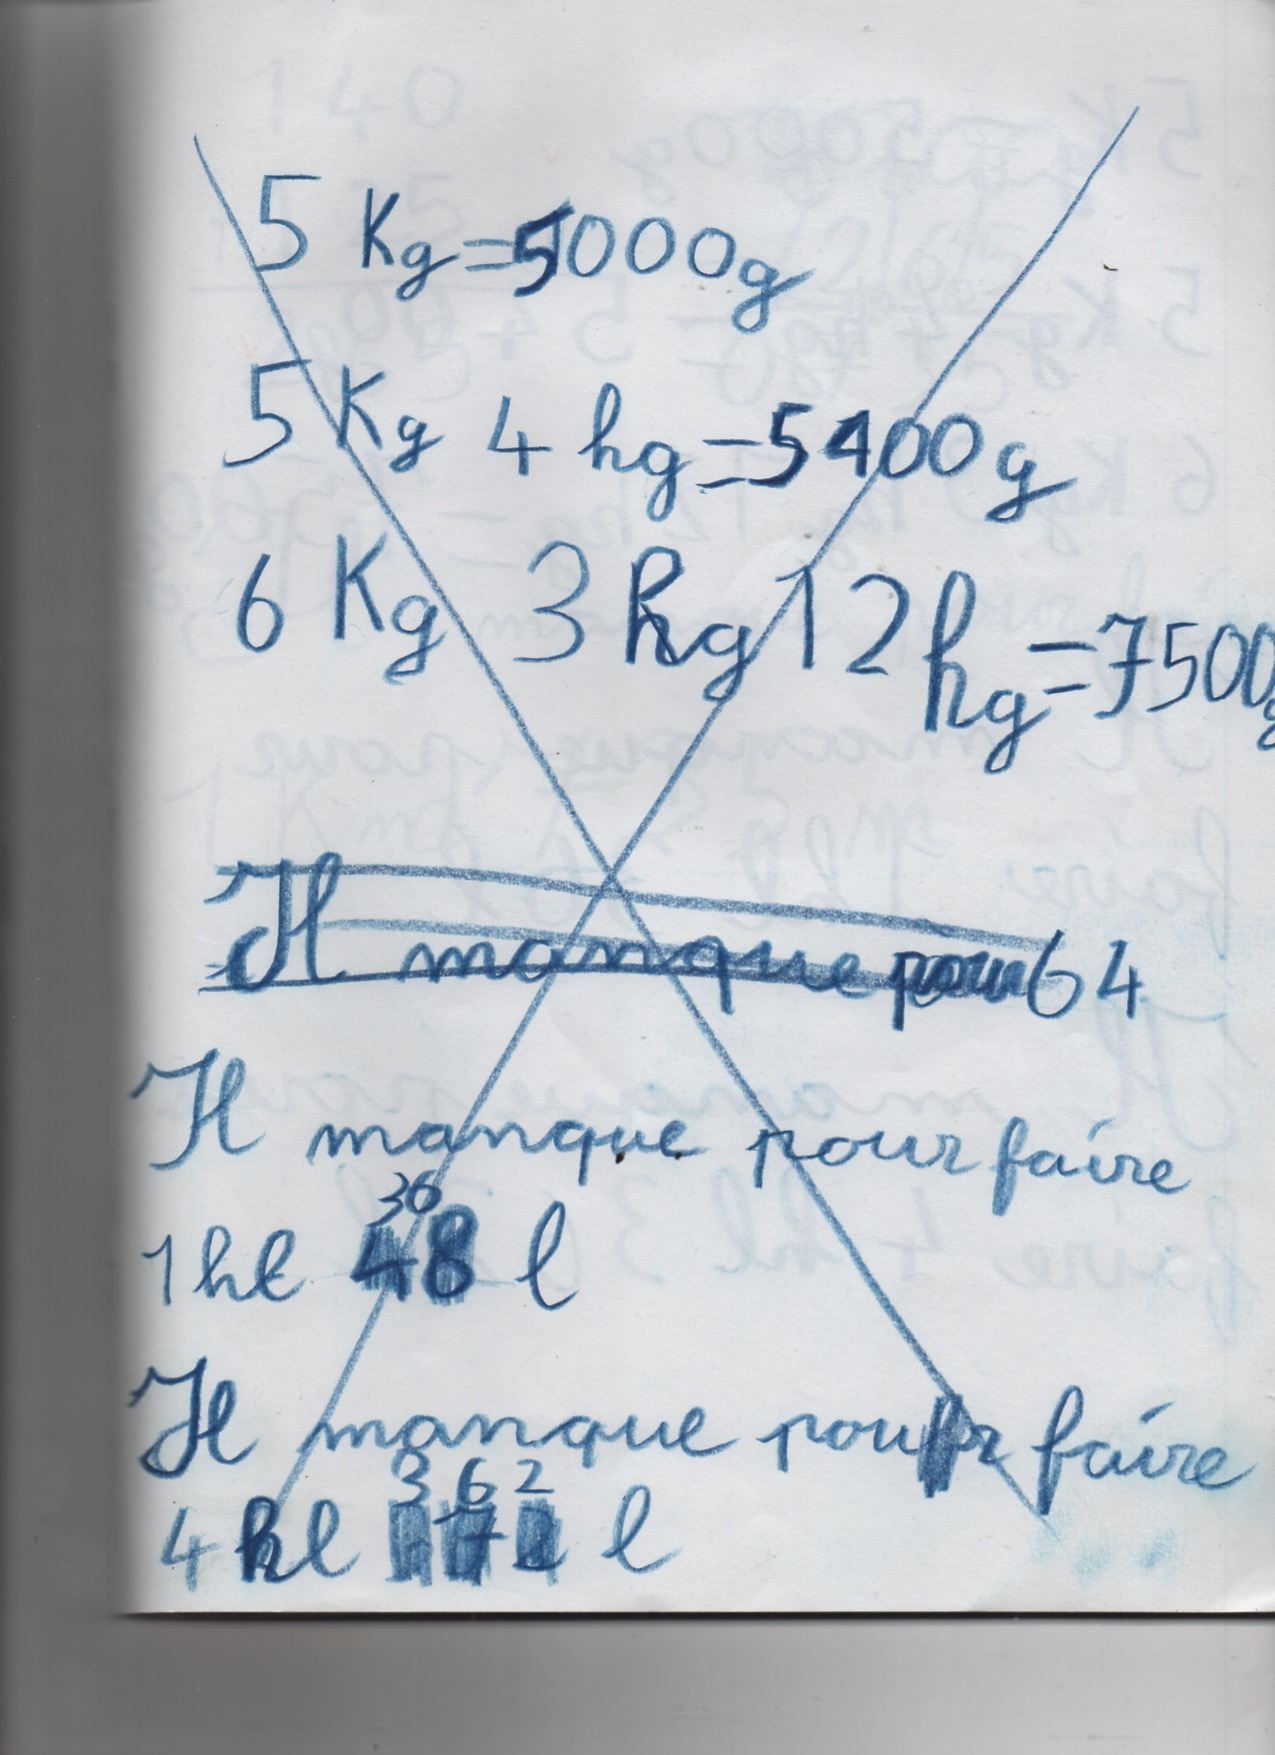 5 Kg=5000g
5 Kg 4 hg=5400g
6 Kg 3 hg 12 hg=7500g
Il manque pour 64
Il manque pour faire
36
1hl 48 l
Il manque pour faire
3 6 2
4 hl l